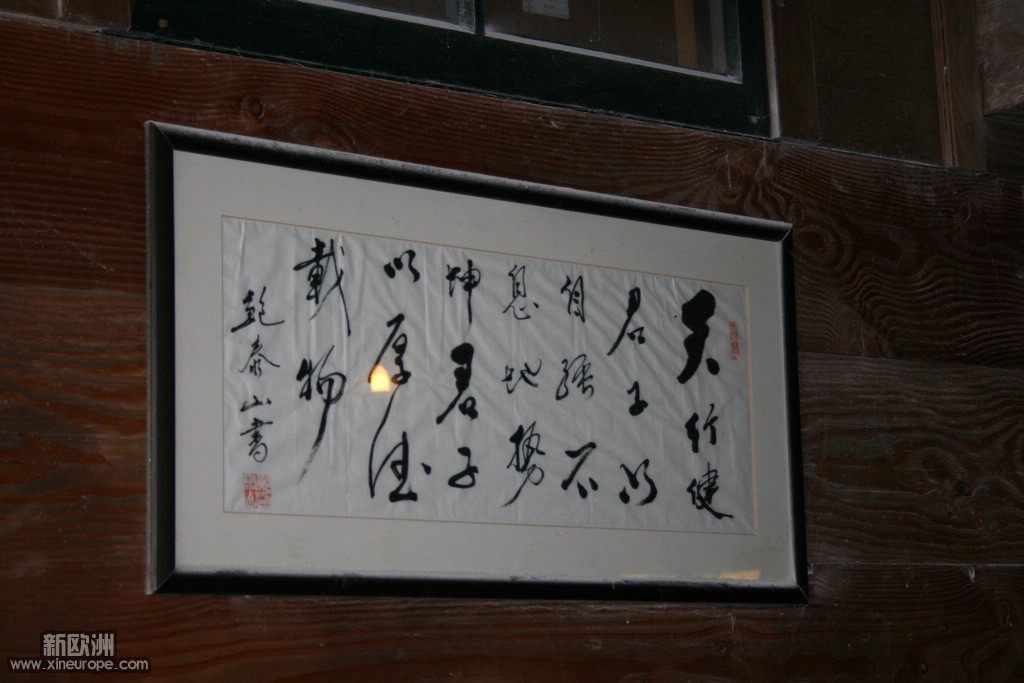 天行健
君子以
自强不
息地势
坤君子
以厚德
载物
乾泰山書
新欧洲
www.xineurope.com